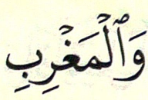 وَٱلْمَغْرِبِ